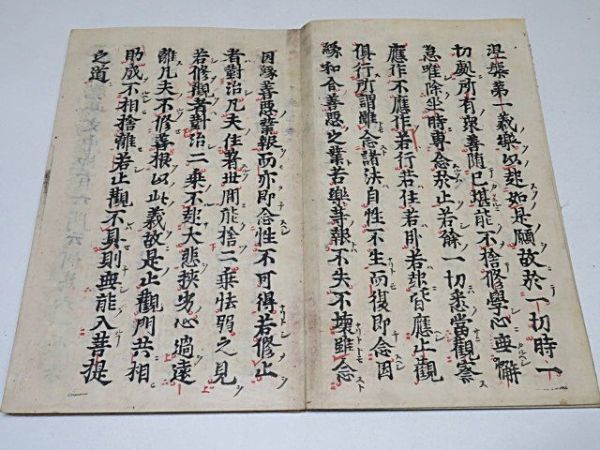 涅槃第一義樂以起如是願故於一切時一
切處所有衆善随已堪能不捨修學心無懈
怠唯除坐時專念於止若餘一切悉當觀察
應作不應作若行若住若卧若起皆應止觀
俱行所謂雖念諸法自性不生而復即念因
縁和合善惡之業苦樂等報不失不壞雖念
因縁善惡業報而亦即念性不可得若修止
者對治凡夫住著世間能捨二乘怯弱之見
若修觀者對治二乘不起大悲狹劣心過遠
離凡夫不修善根以此義故是止觀門共相
助成不相捨離若止觀不具則無能入菩提
之道